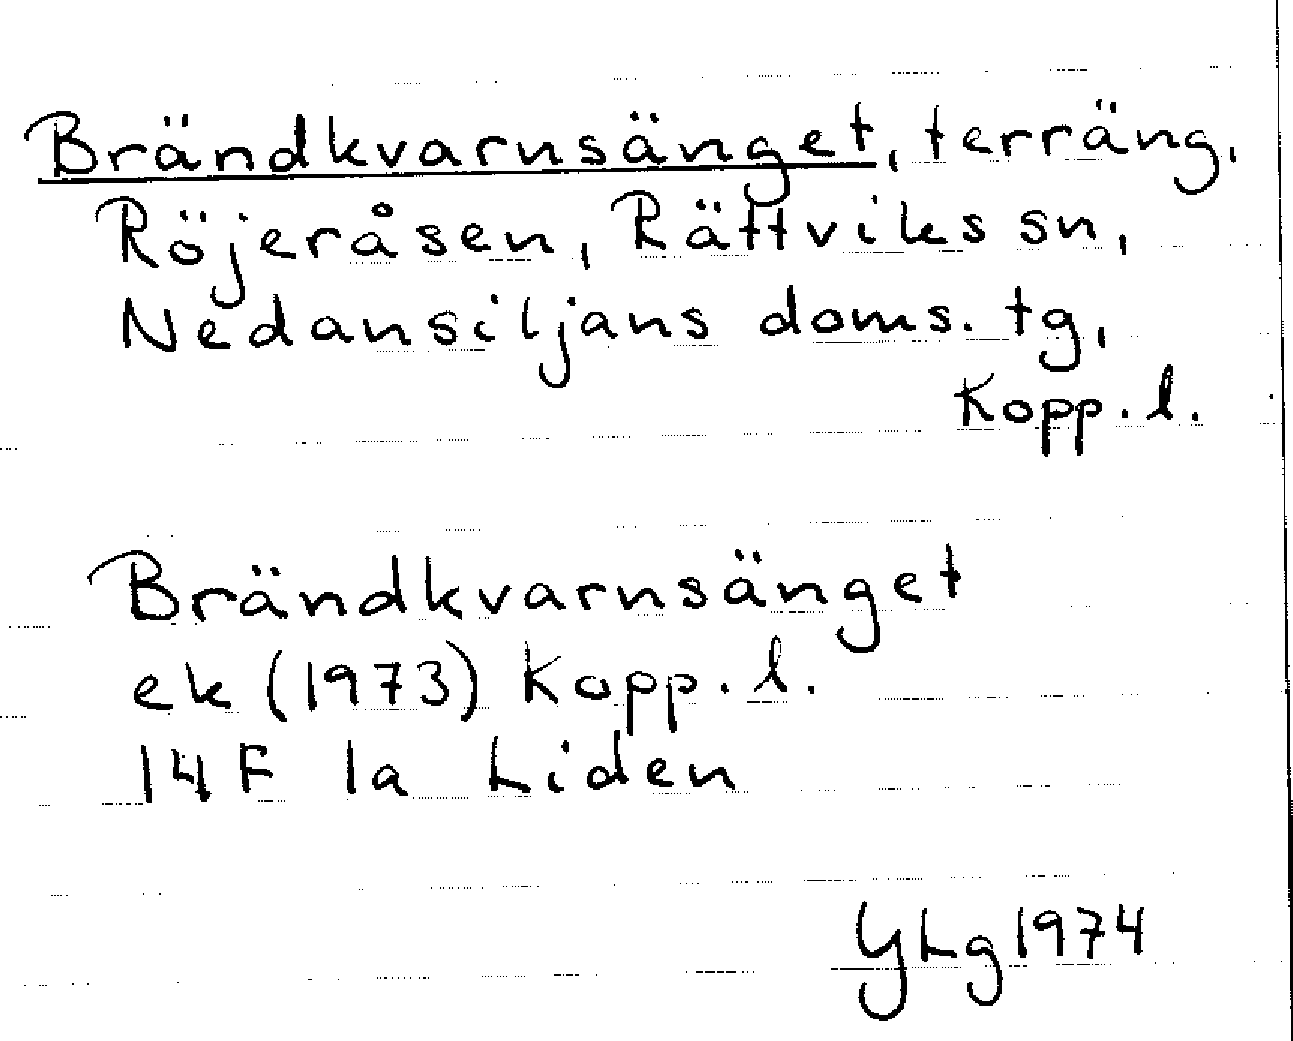 Brändkvarnsänget, terräng,
Röjeråsen, Rättviks sn,
Nedansiljans doms. tg,
Kopp. l.
Brändkvarnsänget
ek (1973) Kopp. l.
14F 1a Liden
YLg 1974